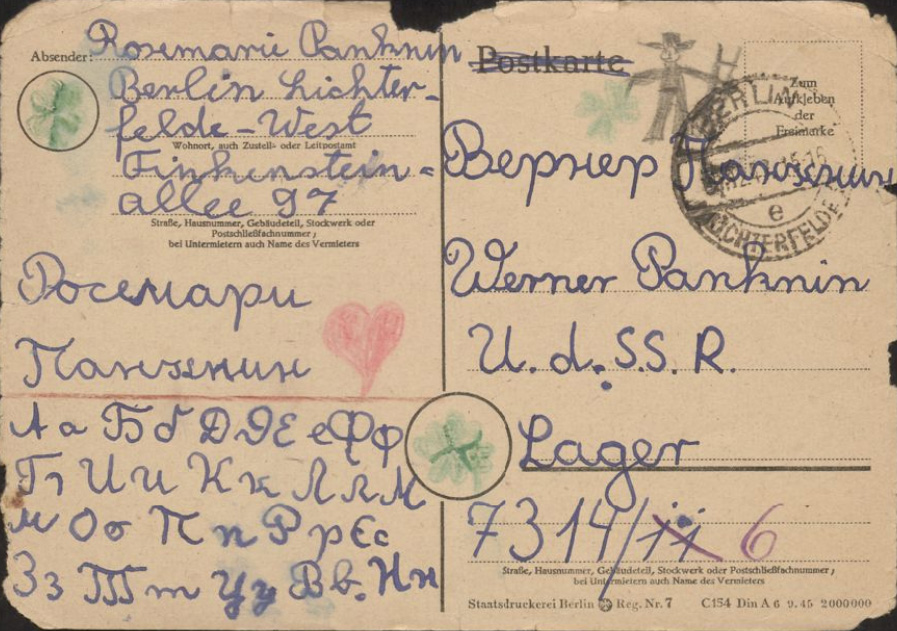 Absender: Rosemarie Panknin
Berlin Lichter-
felde-West
Wohnort, auch Zustell- oder Leitpostamt
Finkenstein-
allee 97
Straße, Hausnummer, Gebäudeteil, Stockwerk oder
Postschließfachnummer;
bei Untermietern auch Name des Vermieters
Росемари
Панкнин
Аа Бб Дд Ее Фф
Гг Ии Кк Лл М
м Оо Пп Рр Сс
Зз Тт Уу Вв. Нн
Postkarte
Zum
Aufkleben
der
Freimarke
BERLIN
e
LICHTERFELDE
Вернер Панкнин
Werner Panknin
U.d.S.S.R.
Lager
7314/ 6
Straße, Hausnummer, Gebäudeteil, Stockwerk oder Postschließfachnummer;
bei Untermietern auch Name des Vermieters
Staatsdruckerei Berlin Reg. Nr. 7 C154 Din A 6 9. 45 2000000